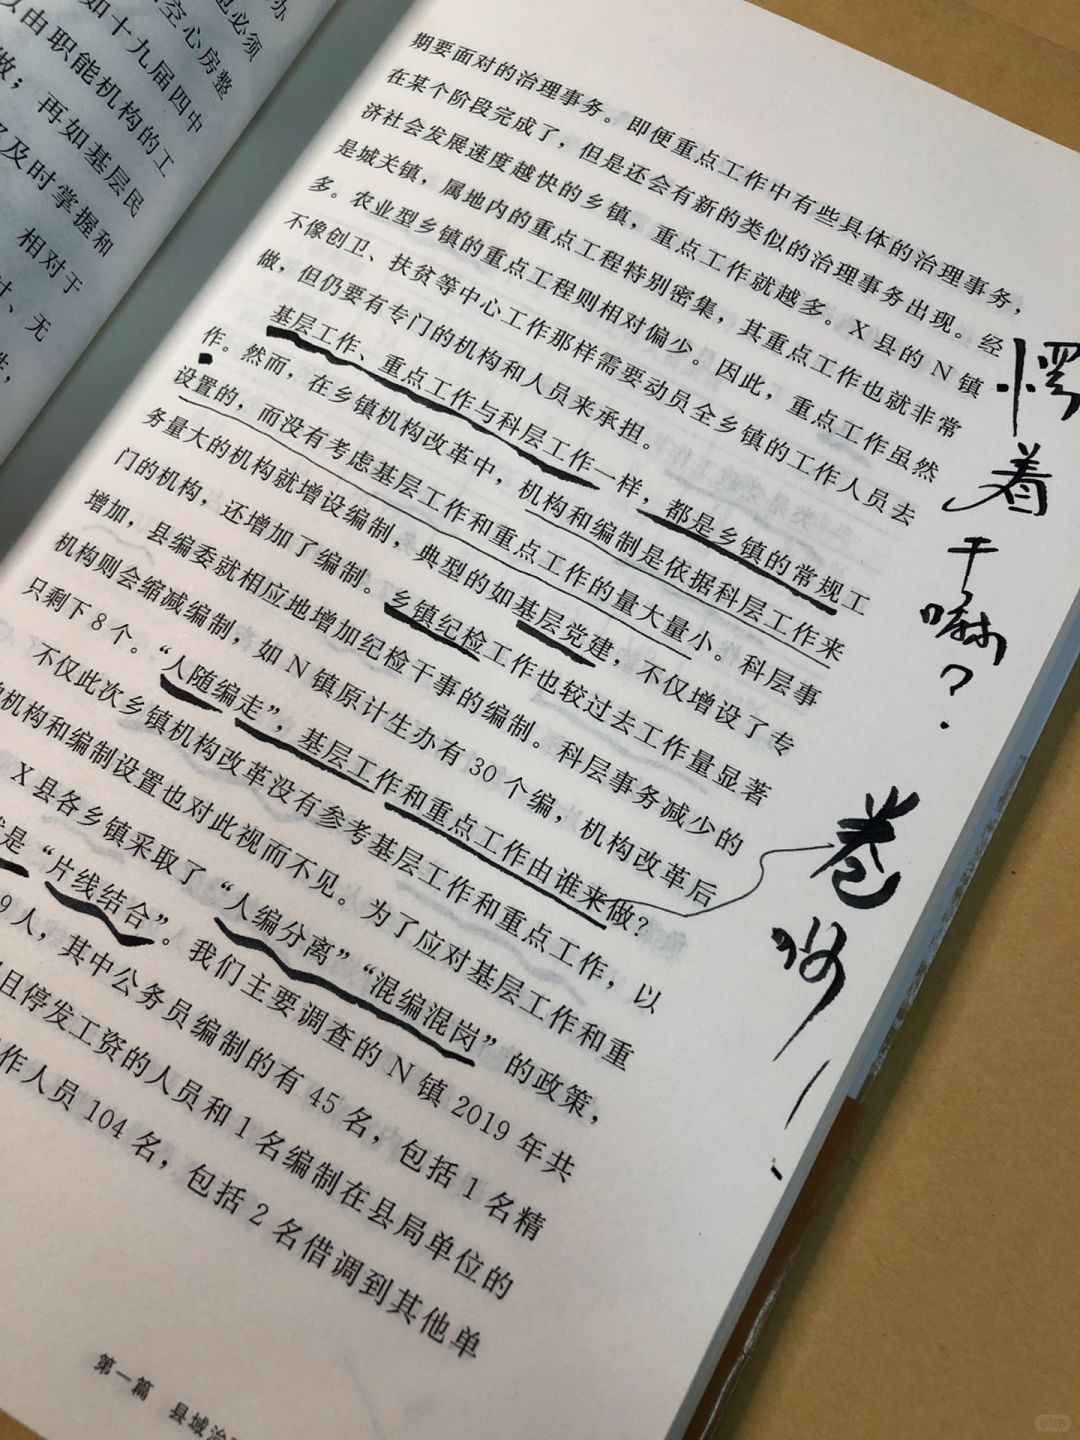 办
也必须
空心房整
如十九届四中
以由职能机构的工
做；再如基层民
及时掌握和
相对于
无
期要面对的治理事务。即便重点工作中有些具体的治理事务，
在某个阶段完成了，但是还会有新的类似的治理事务出现。经
济社会发展速度越快的乡镇，重点工作就越多。X 县的 N 镇
是城关镇，属地内的重点工程特别密集，其重点工作也就非常
多。农业型乡镇的重点工程则相对偏少。因此，重点工作虽然
不像创卫、扶贫等中心工作那样需要动员全乡镇的工作人员去
做，但仍要有专门的机构和人员来承担。
基层工作、重点工作与科层工作一样，都是乡镇的常规工
作。然而，在乡镇机构改革中，机构和编制是依据科层工作来
设置的，而没有考虑基层工作和重点工作的量大量小。科层事
务量大的机构就增设编制，典型的如基层党建，不仅增设了专
门的机构，还增加了编制。乡镇纪检工作也较过去工作量显著
增加，县编委就相应地增加纪检干事的编制。科层事务减少的
机构则会缩减编制，如 N 镇原计生办有 30 个编，机构改革后
只剩下 8 个。“人随编走”，基层工作和重点工作由谁来做？
不仅此次乡镇机构改革没有参考基层工作和重点工作，以
机构和编制设置也对此视而不见。为了应对基层工作和重
X 县各乡镇采取了“人编分离”“混编混岗”的政策，
是“片线结合”。我们主要调查的 N 镇 2019 年共
9 人，其中公务员编制的有 45 名，包括 1 名精
且停发工资的人员和 1 名编制在县局单位的
作人员 104 名，包括 2 名借调到其他单
第一篇 县域治
愣着干嘛？
卷
小红书